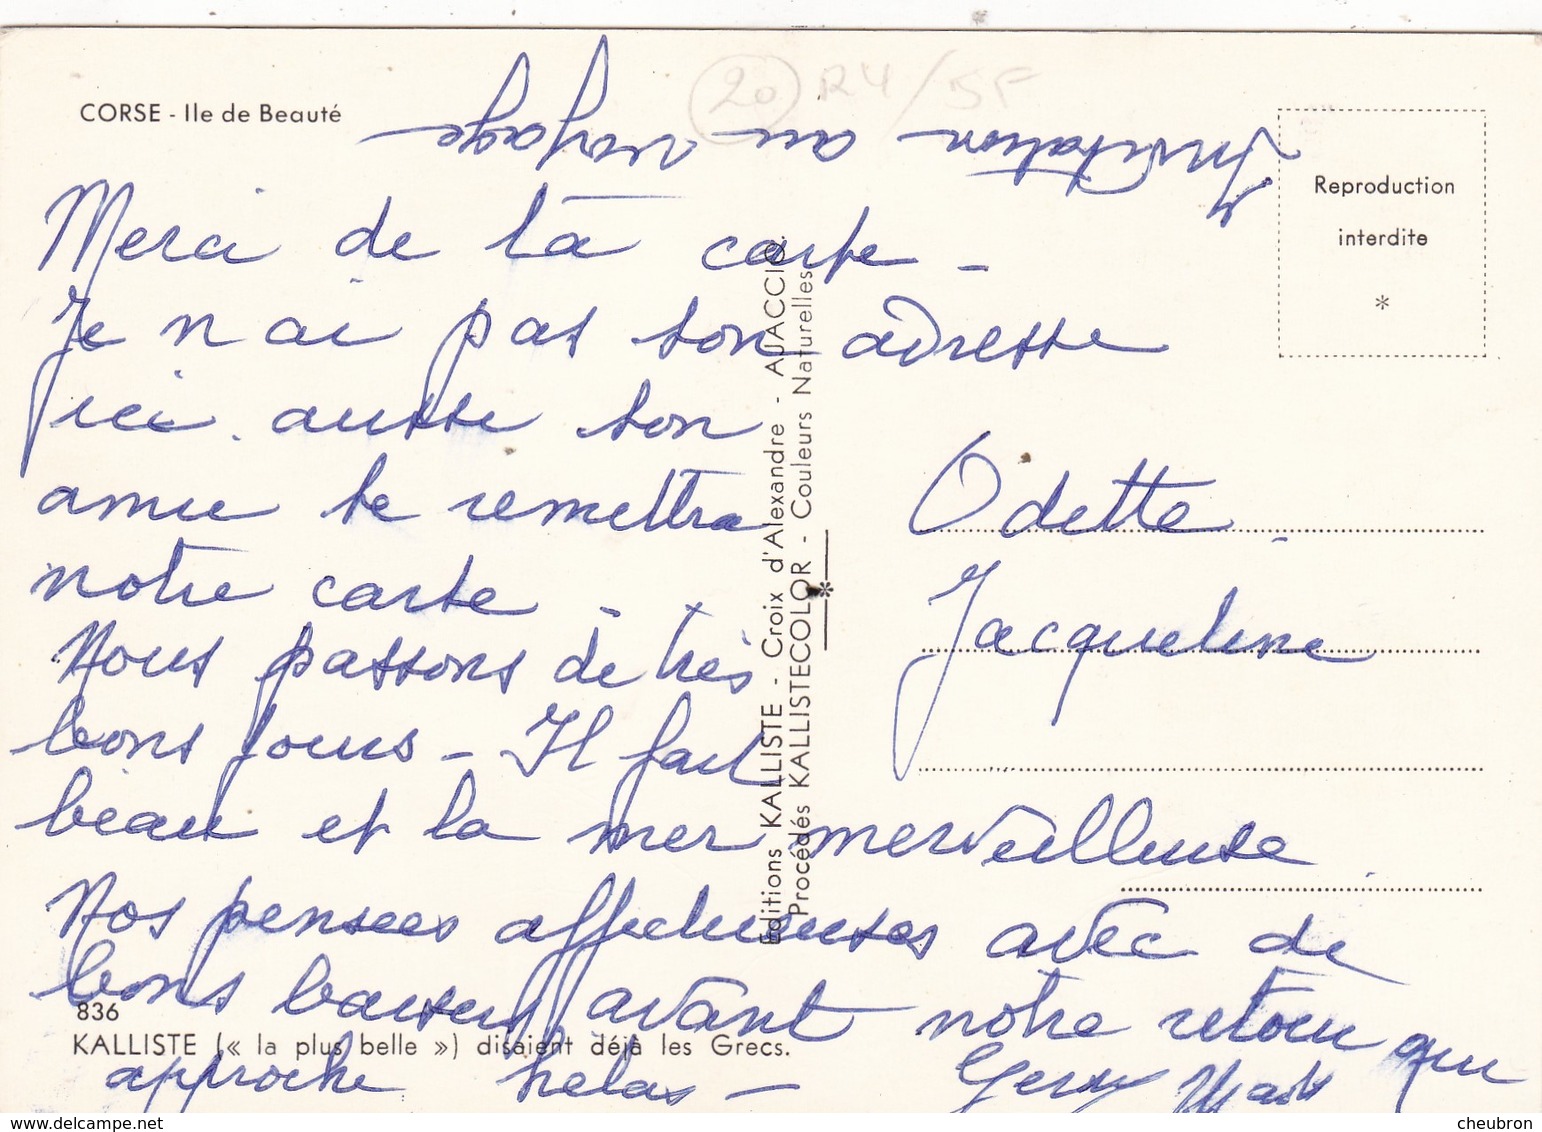 20 R4/5F
CORSE - Ile de Beauté
Invitation au voyage
Reproduction
interdite
*
Merci de ta carte -
Je n ai pas ton adresse
ici. aussi ton
amie te remettra
notre carte -
Nous passons de très
bons jours - Il fait
beau et la mer merveilleuse
Nos pensées affectueuses avec de
bons baisers avant notre retour qui
approche helas -
Odette -
Jacqueline
Editions KALLISTE - Croix d'Alexandre - AJACCIO.
Procédés KALLISTECOLOR - Couleurs Naturelles
836
KALLISTE (« la plus belle ») disaient déjà les Grecs.
cheubron
www.delcampe.net